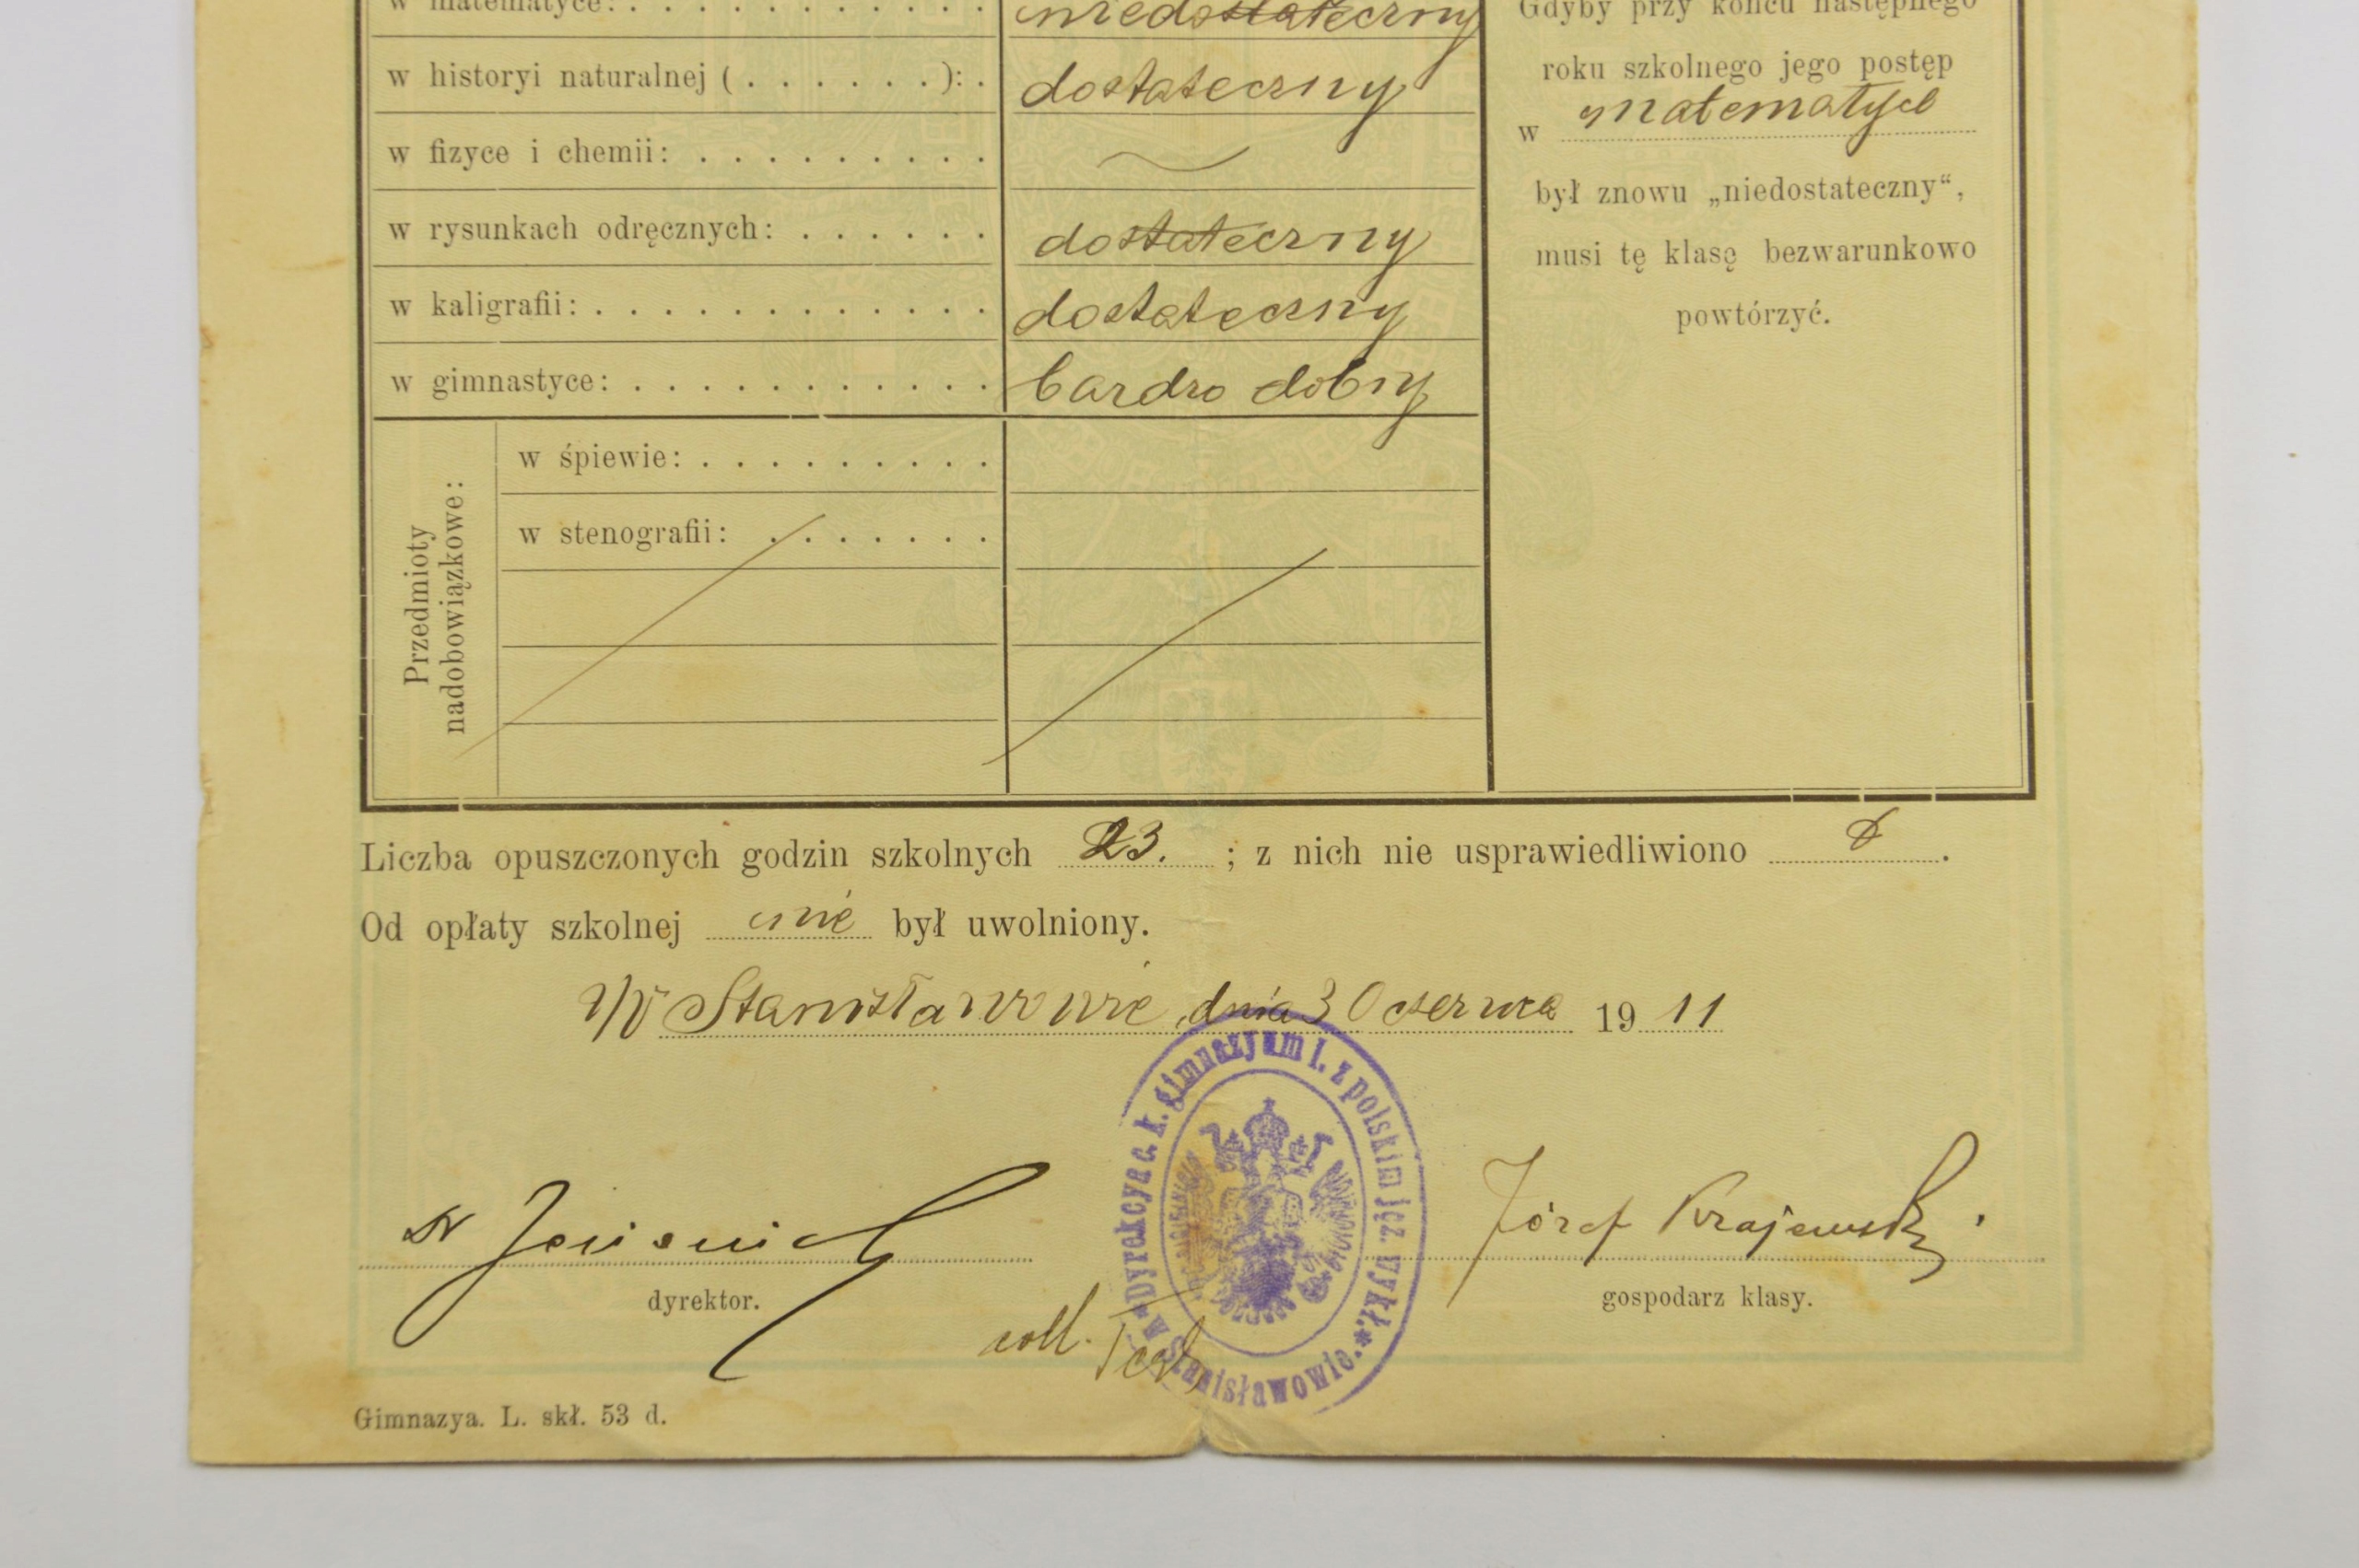 w matematyce: niedostateczny
w historyi naturalnej ( . . . . . . ): . dostateczny
w fizyce i chemii:
w rysunkach odręcznych: dostateczny
w kaligrafii: dostateczny
w gimnastyce: bardzo dobry
Przedmioty
nadobowiązkowe:
w śpiewie:
w stenografii:
Gdyby przy końcu następnego
roku szkolnego jego postęp
w matematyce
był znowu „niedostateczny“,
musi tę klasę bezwarunkowo
powtórzyć.
Liczba opuszczonych godzin szkolnych 23. ; z nich nie usprawiedliwiono .
Od opłaty szkolnej nie był uwolniony.
W Stanisławowie, dnia 30 czerwca 1911
Dyrekcya c. k. gimnazyum I. z polskim jęz. wykł.
w Stanisławowie.
dyrektor.
Józef Krajewski.
gospodarz klasy.
coll.
Gimnazya. L. skł. 53 d.